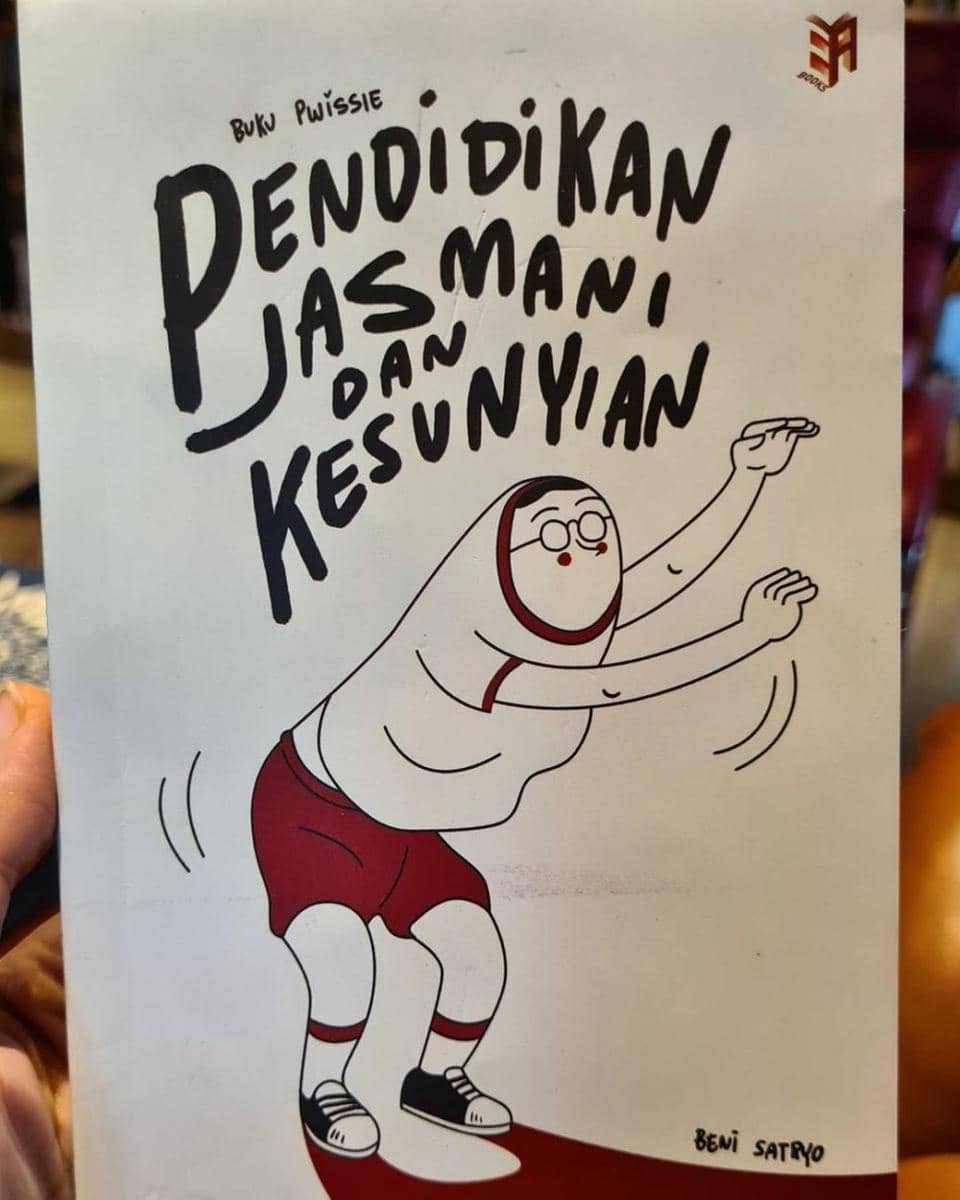 EA
BOOKS
BUKU PWISSIE
PENDIDIKAN
JASMANI
DAN
KESUNYIAN
BENI SATRYO